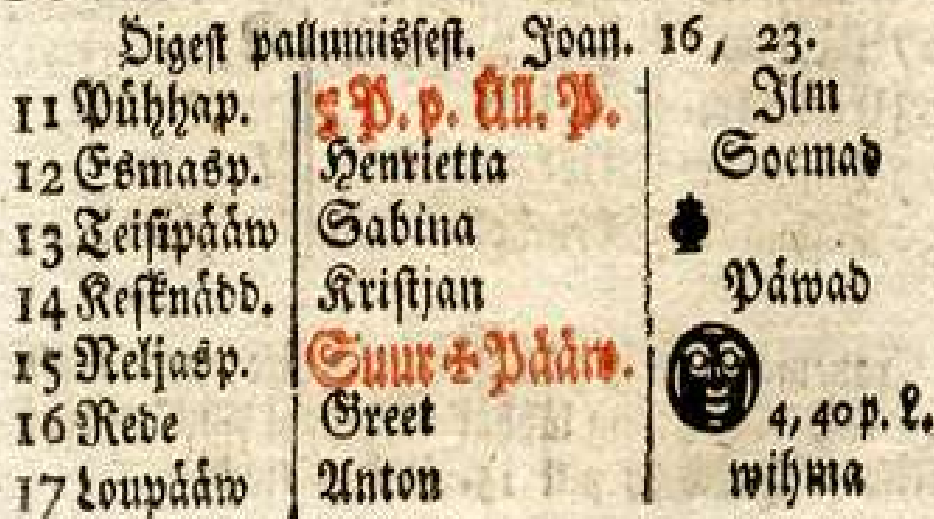 Öigest pallumissest. Joan. 16, 23.
11 Pühhap. 5 P. p. Ül. P. Ilm
12 Esmasp. Henrietta Soemad
13 Teisipääw Sabina
14 Kesknädd. Kristjan Päwad
15 Neljasp. Suur ✠ Pääw.
16 Rede Greet 4, 40 p. L.
17 Loupääw Anton wihma